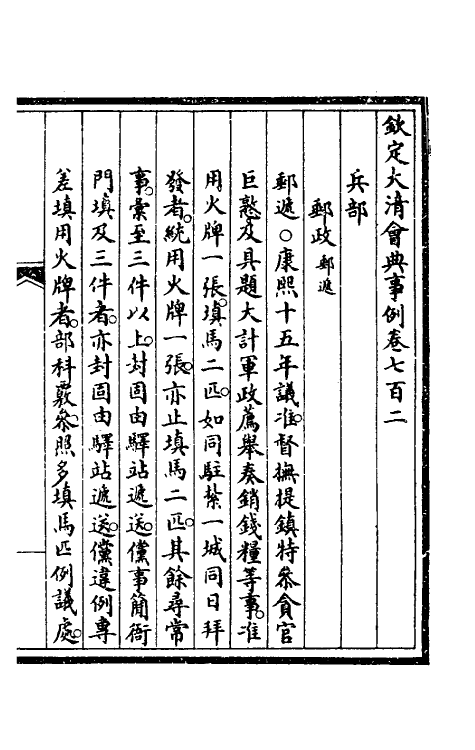 欽定大清會典事例卷七百二
兵部
郵政郵遞
郵遞○康熙十五年議准。督撫提鎮特參貪官
巨憝及具題大計軍政薦舉奏銷錢糧等事。准
用火牌一張。填馬二匹。如同駐紮一城同日拜
發者。統用火牌一張。亦止填馬二匹。其餘尋常
事。彙至三件以上。封固由驛站遞送。儻事簡衙
門填及三件者。亦封固由驛站遞送。儻違例專
差填用火牌者。部科覈參。照多填馬匹例議處。